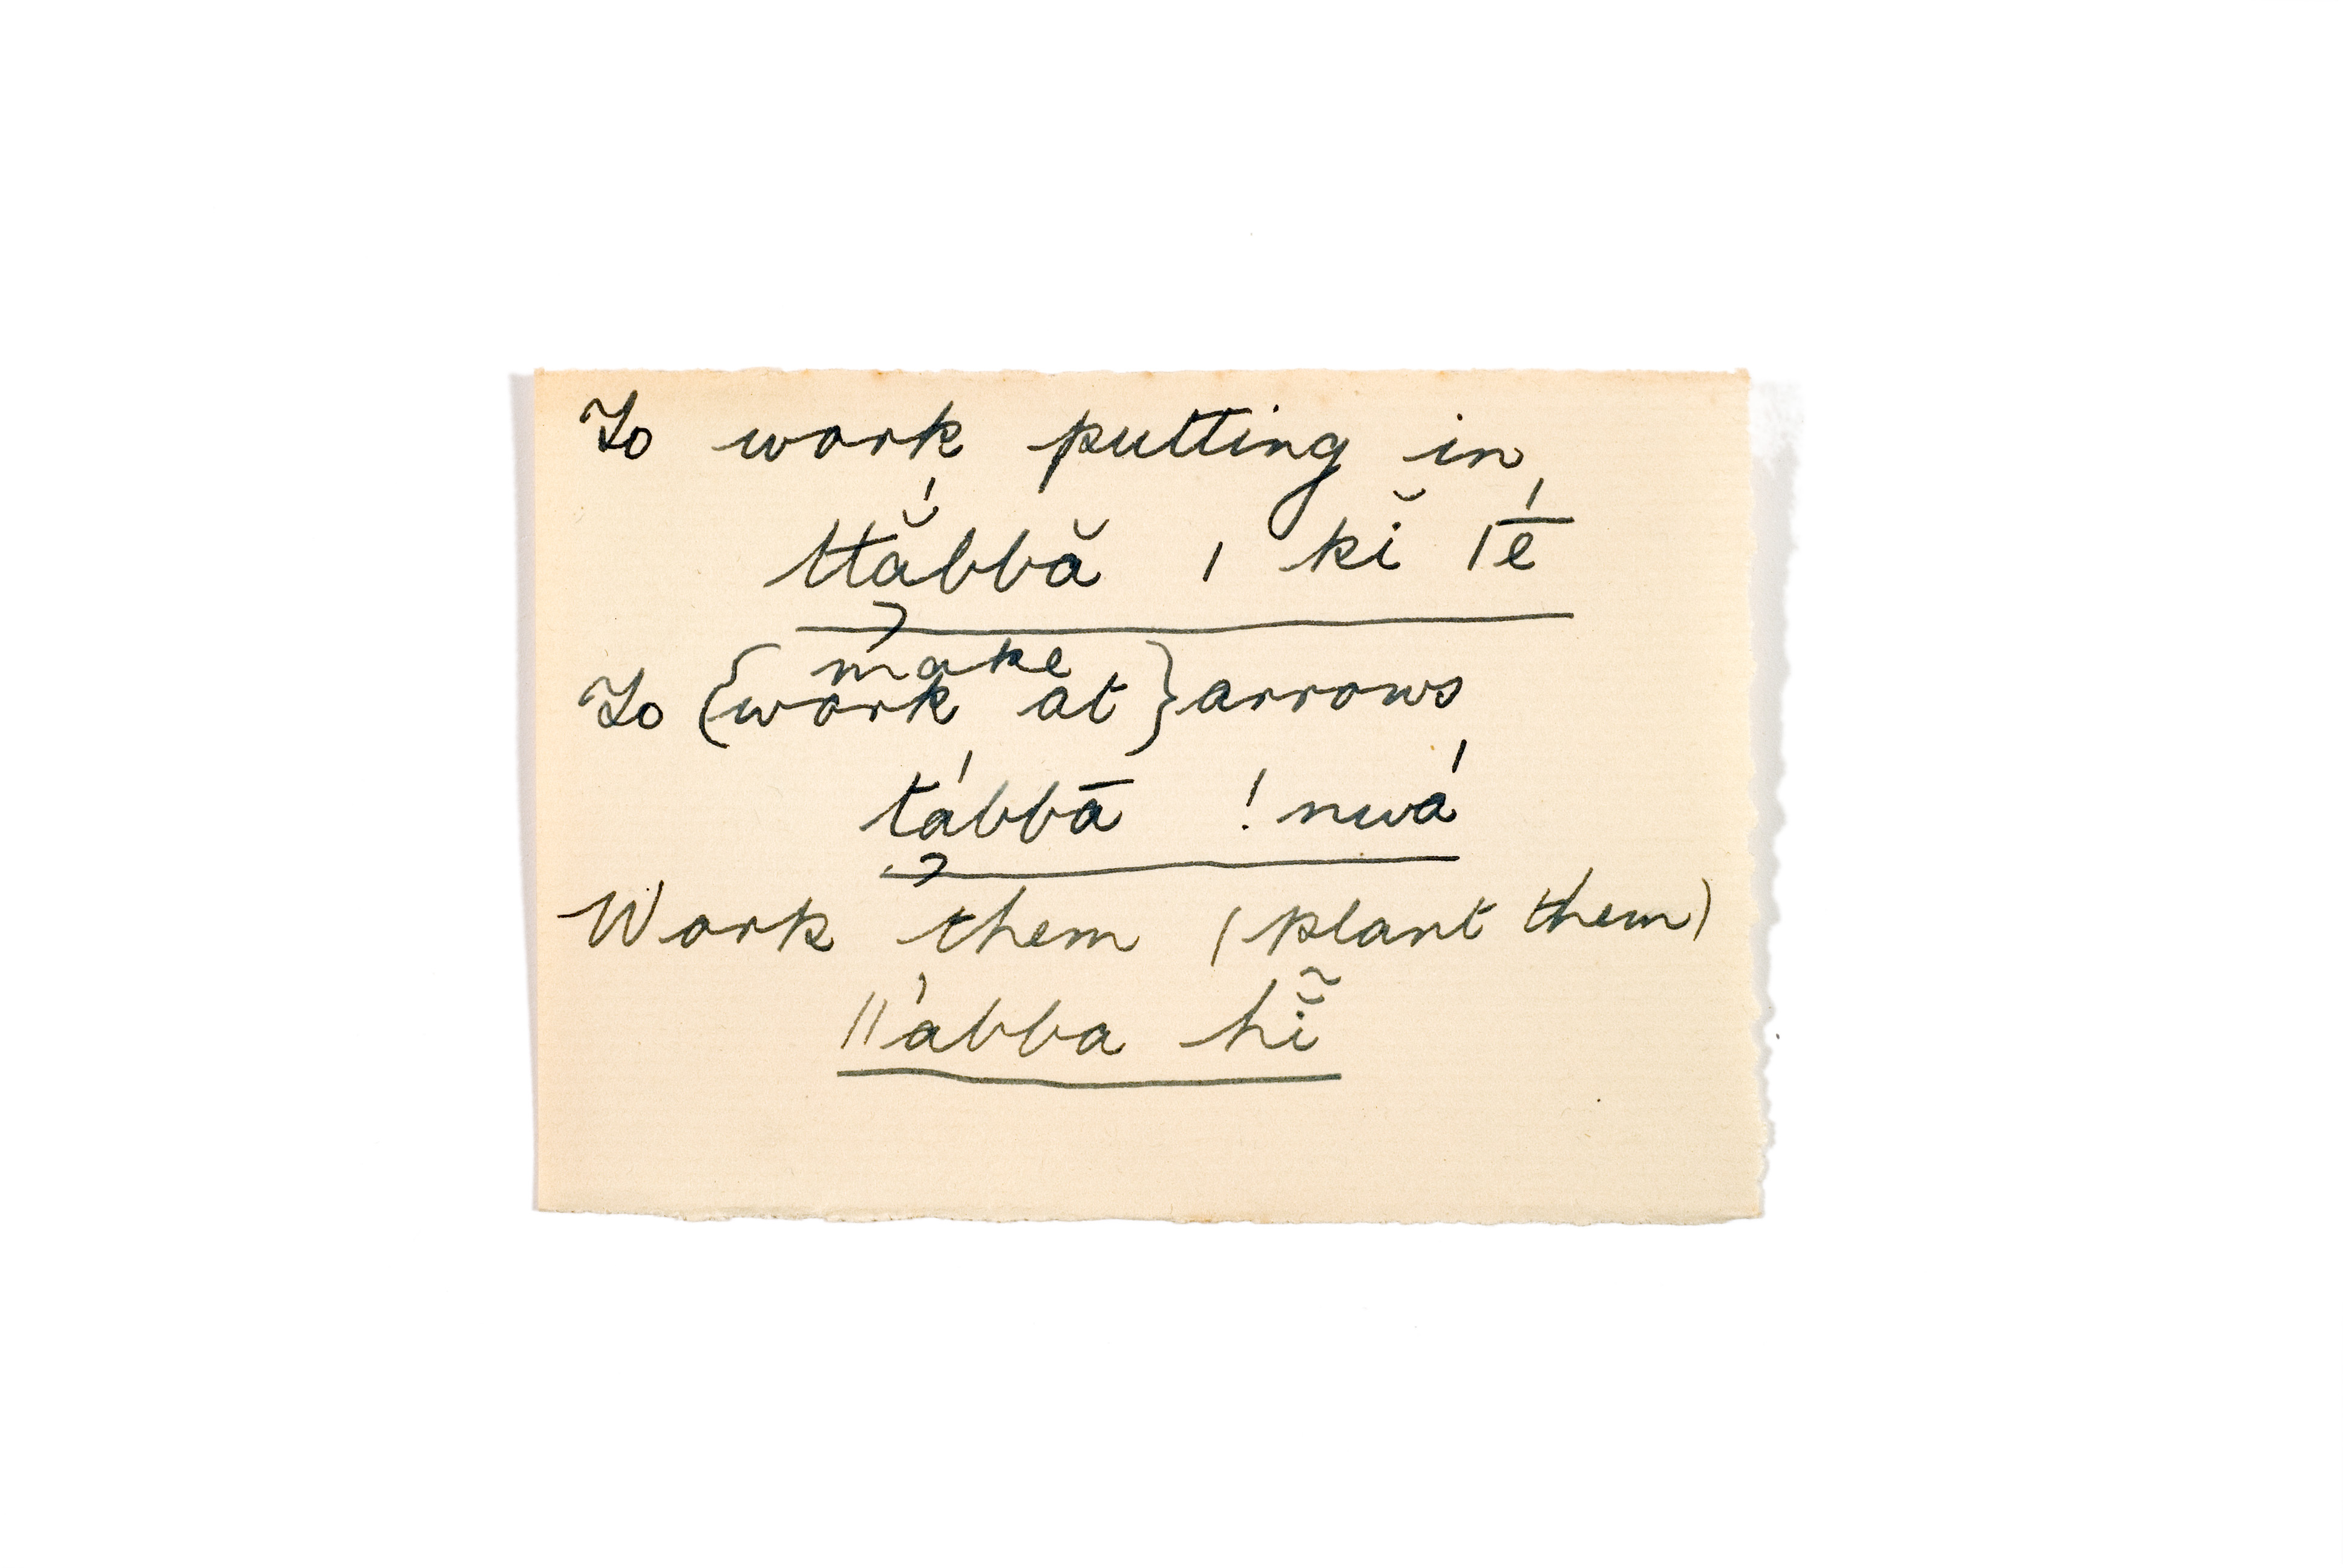 To work putting in
ttắbbă ǀ kĭ ǀḗ
make
To {work at} arrows
tábbā ! nwá
Work them (plant them)
ǁábba hĭ̃